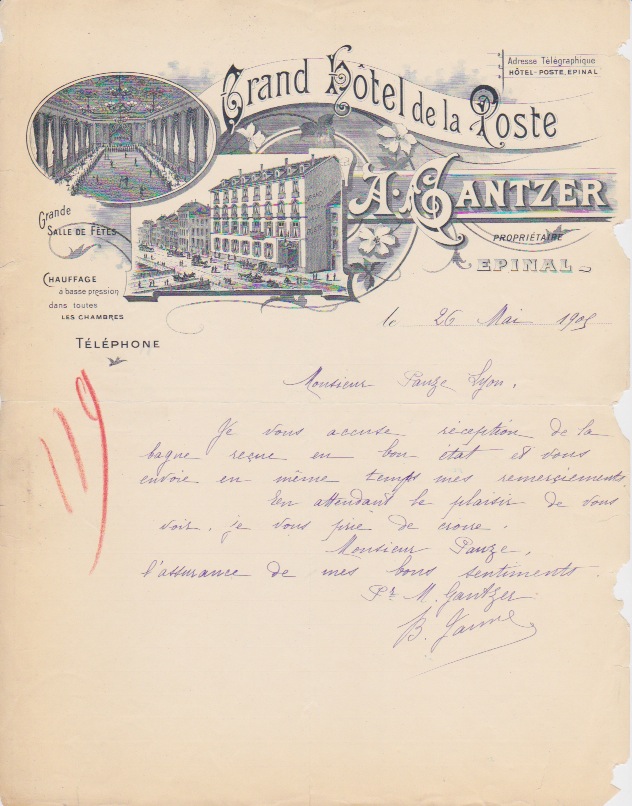 Grand Hôtel de la Poste
Adresse Télégraphique
HÔTEL-POSTE, EPINAL
A. GANTZER
PROPRIÉTAIRE
EPINAL
Grande
SALLE DE FÊTES
CHAUFFAGE
à basse pression
dans toutes
LES CHAMBRES
TÉLÉPHONE
le 26 Mai 1905
Monsieur Panze Lyon.
119
Je vous accuse réception de la
bague reçue en bon état et vous
envoie en même temps mes remerciements.
En attendant le plaisir de vous
voir, je vous prie de croire.
Monsieur Panze,
l'assurance de mes bons sentiments.
Pr M. Gantzer
B.